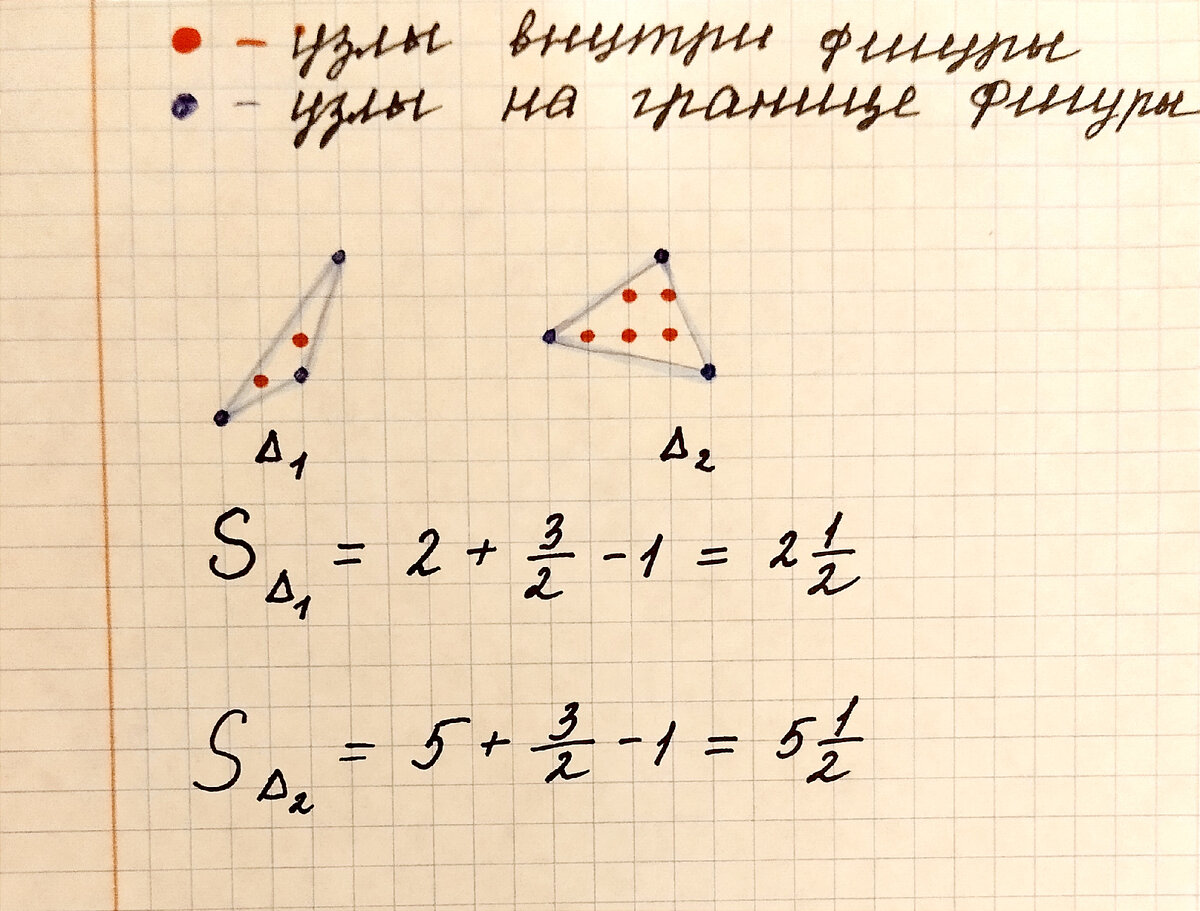 - узлы внутри фигуры
- узлы на границе фигуры
Δ₁ Δ₂
S_Δ₁ = 2 + 3/2 - 1 = 2 1/2
S_Δ₂ = 5 + 3/2 - 1 = 5 1/2